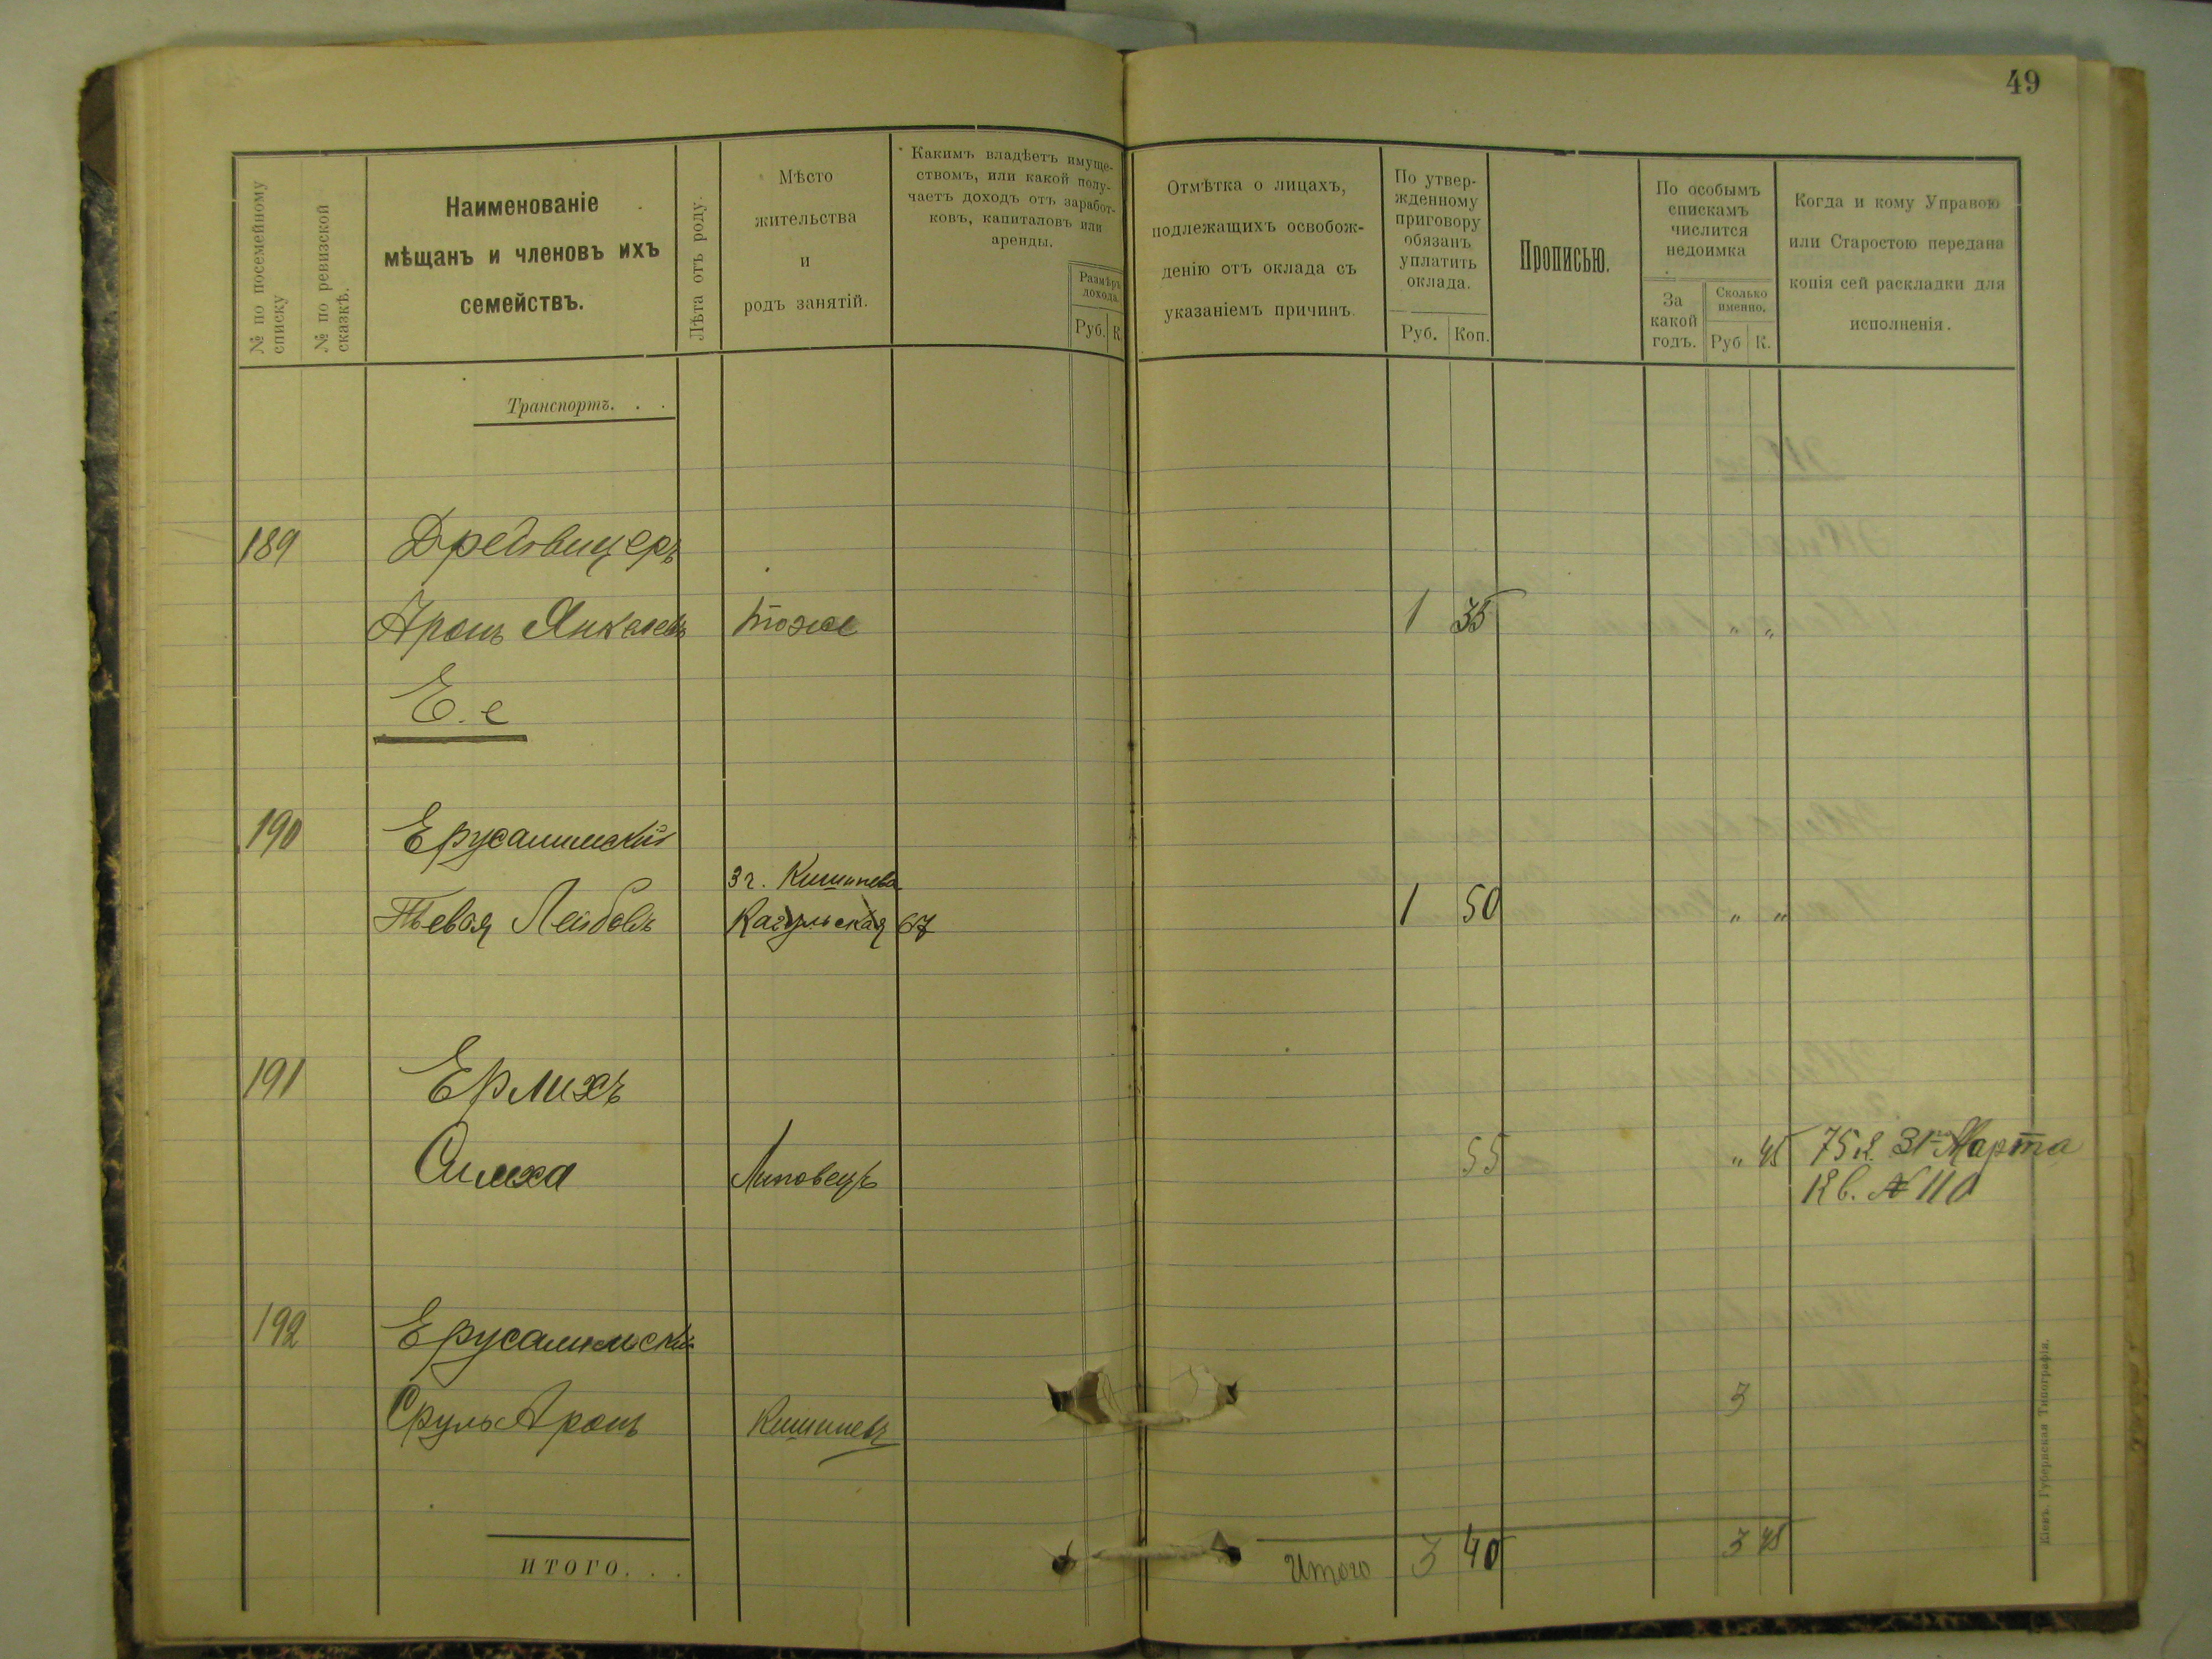 49
№ по посемейному списку
№ по ревизской сказкѣ.
Наименованіе
мѣщанъ и членовъ ихъ
семействъ.
Лѣта отъ роду.
Мѣсто
жительства
и
родъ занятій.
Какимъ владѣетъ имуще-
ствомъ, или какой полу-
чаетъ доходъ отъ заработ-
ковъ, капиталовъ или
аренды.
Размѣръ
дохода.
Руб. К
Отмѣтка о лицахъ,
подлежащихъ освобож-
денію отъ оклада съ
указаніемъ причинъ.
По утвер-
жденному
приговору
обязанъ
уплатить
оклада.
Руб. Коп.
Прописью.
По особымъ
спискамъ
числится
недоимка
За
какой
годъ.
Сколько
именно.
Руб К.
Когда и кому Управою
или Старостою передана
копія сей раскладки для
исполненія.
Транспортъ. . .
189 Дредвицеръ
Аронъ Янкелевъ тоже 1 35 " "
Е. е
190 Ерусалимскій
3 г. Кишинева
Лейбовъ Кагульская 67 1 50 " "
191 Ерлихъ
Симха Липовецъ 55 " 45 75 к. 31го Марта
Кв. № 110
192 Ерусалимскій
Сруль Аронъ Кишиневъ 3
ИТОГО. . .
Итого 3 40 3 45
Кіевъ. Губернская Типографія.